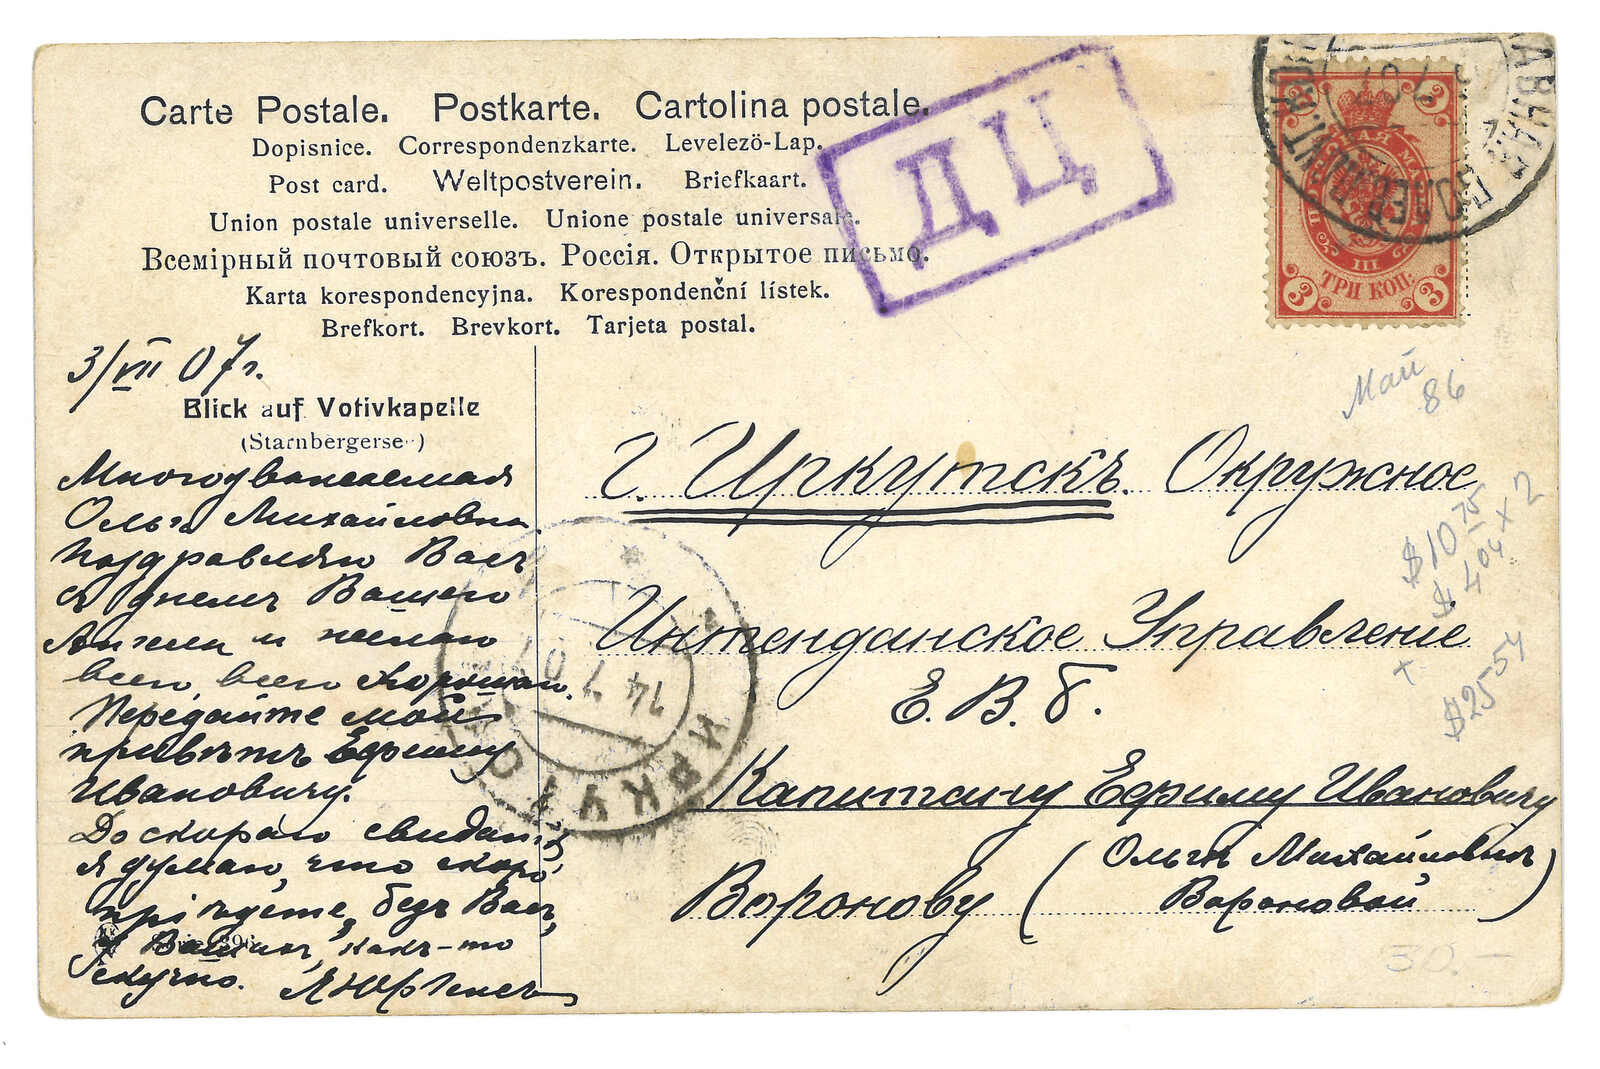 Carte Postale. Postkarte. Cartolina postale.
Dopisnice. Correspondenzkarte. Levelező-Lap.
Post card. Weltpostverein. Briefkaart.
Union postale universelle. Unione postale universale.
Всемірный почтовый союзъ. Россія. Открытое письмо.
Karta korespondencyjna. Korespondenční lístek.
Brefkort. Brevkort. Tarjeta postal.
ДЦ
3 3
ТРИ КОП.
3 3
3/VII 07 г.
Blick auf Votivkapelle
(Starnbergersee)
Многоуважаемая
Ольга Михайловна
поздравляю Васъ
съ днемъ Вашего
Ангела и желаю
всего, всего хорошаго.
Передайте мой
привѣтъ Ефиму
Ивановичу.
До скораго свиданія
я думаю, что скоро
пріѣдете, безъ Васъ,
какъ-то
скучно.
Май
86
г. Иркутскъ. Окружное
Интендантское Управленіе
Е. В. Б.
Капитану Ефиму Ивановичу
Воронову (Ольгѣ Михайловнѣ
Вороновой)
14 7 07
ИРКУТСК
$10 75
$4 04 x 2
x
$25 54
30.-